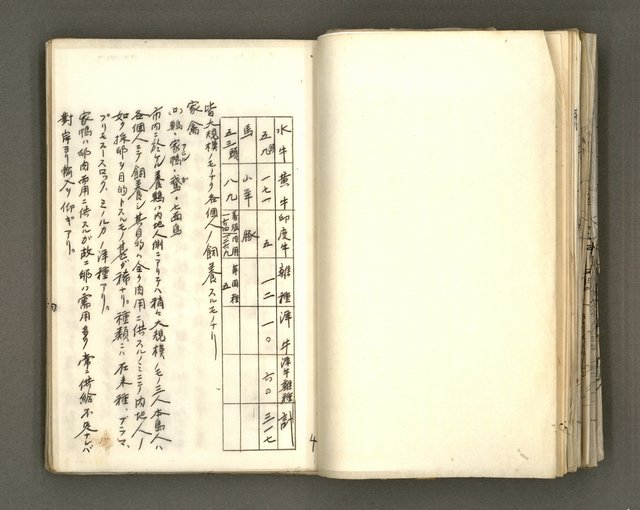 水牛 黄牛 印度牛 雑種 洋牛 洋牛雑種 計
五九頭 一七一 五 一二 一〇 六〇 三一七
馬 山羊 豚
五三頭 八九
皆大規模ノモノナク各個人ノ飼養スルモノナリ
家禽
鶏、家鴨、鵞、七面鳥
市内ニ於ケル養鶏ハ内地人側ニアリテハ稍々大規模ノモノ三人本島人ハ
各個人ニテ飼養シ其目的ハ全ク肉用ニ供スルノミニテ内地人ノ
如ク採卵ヲ目的トスルモノ甚ダ稀ナリ。種類ハ在来種、ブラマ、
プリモースロック、ミノルカノ洋種アリ。
家鴨ハ卵肉両用ニ供スルガ故ニ卵ハ需用多ク常ニ供給不足ナレバ
對岸ヨリ輸入ヲ仰ギアリ。
4